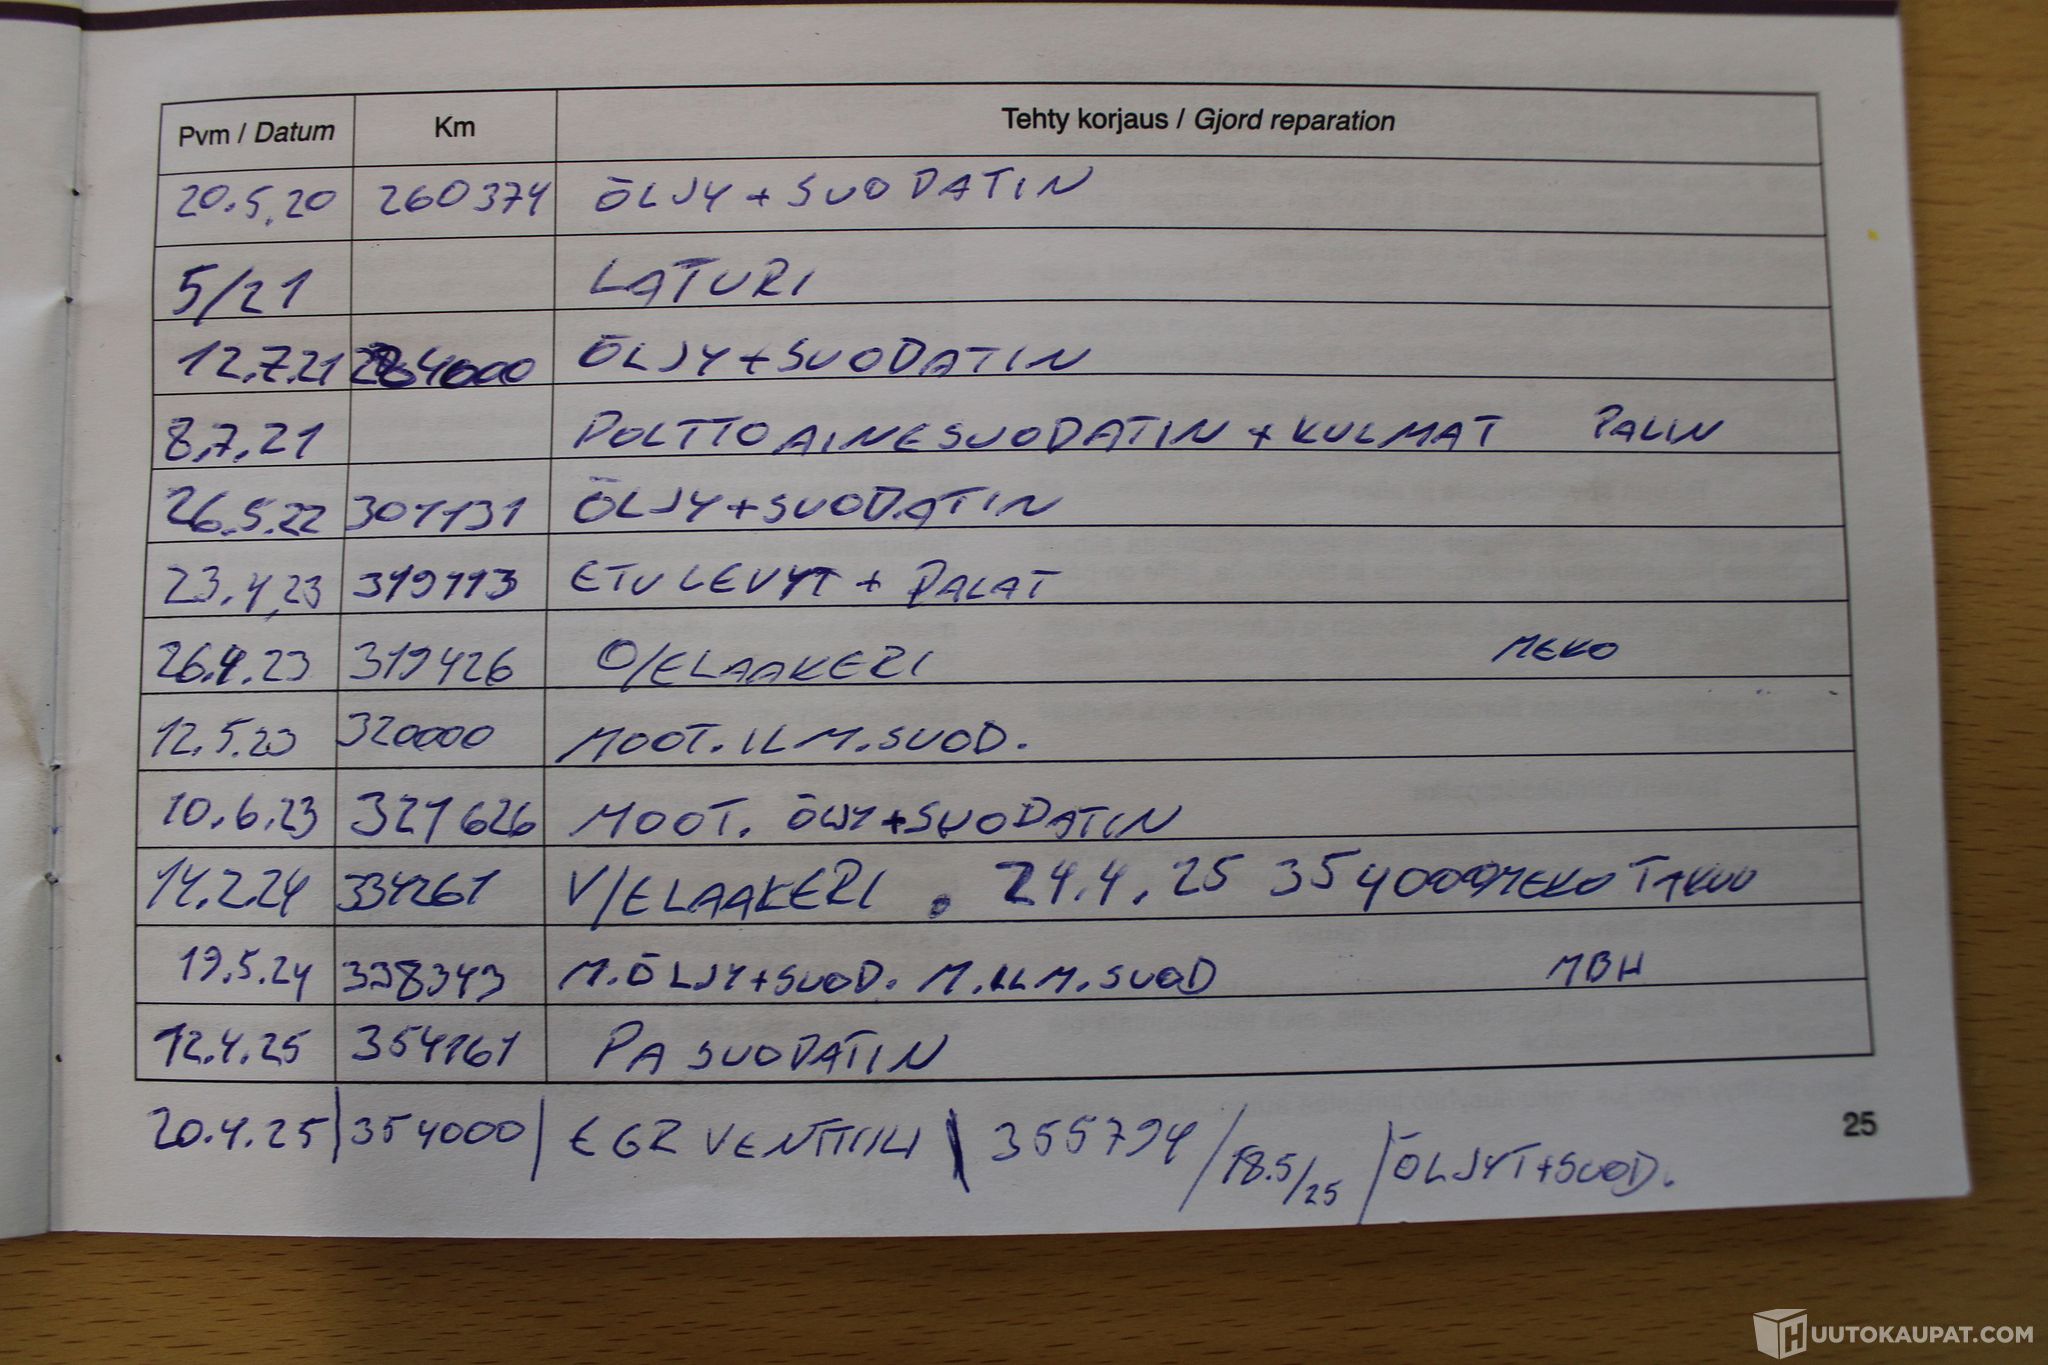 Pvm / Datum Km Tehty korjaus / Gjord reparation
20.5.20 260374 ÖLJY + SUODATIN
5/21 LATURI
12.7.21 284000 ÖLJY + SUODATIN
8.7.21 POLTTOAINESUODATIN + KULMAT PALIN
26.5.22 301131 ÖLJY + SUODATIN
23.4.23 319113 ETULEVYT + PALAT
26.4.23 319426 O/ELAAKERI MEKO
12.5.23 320000 MOOT. ILM. SUOD.
10.6.23 321626 MOOT. ÖLJY + SUODATIN
14.2.24 334261 V/ELAAKERI . 24.4.25 354000 MEKO TAKUU
19.5.24 338343 M.ÖLJY+SUOD. M.ILM.SUOD MBH
12.4.25 354161 PA SUODATIN
20.4.25 | 354000 | EGR VENTTIILI | 355794 / 18.5/25 / ÖLJYT+SUOD.
25
HUUTOKAUPAT.COM